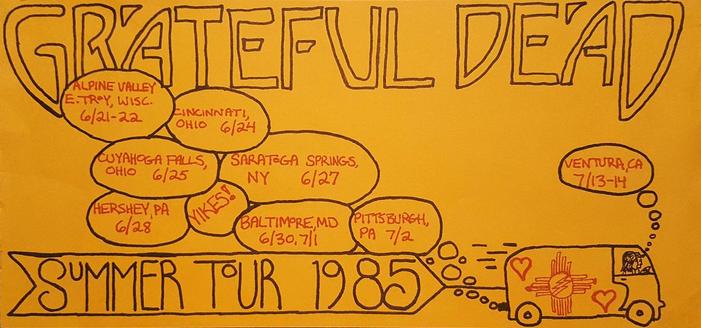 GRATEFUL DEAD
ALPINE VALLEY
E. TROY, WISC.
6/21-22
CINCINNATI,
OHIO 6/24
CUYAHOGA FALLS,
OHIO 6/25
SARATOGA SPRINGS,
NY 6/27
VENTURA, CA
7/13-14
HERSHEY, PA
6/28
YIKES!
BALTIMORE, MD
6/30, 7/1
PITTSBURGH,
PA 7/2
SUMMER TOUR 1985